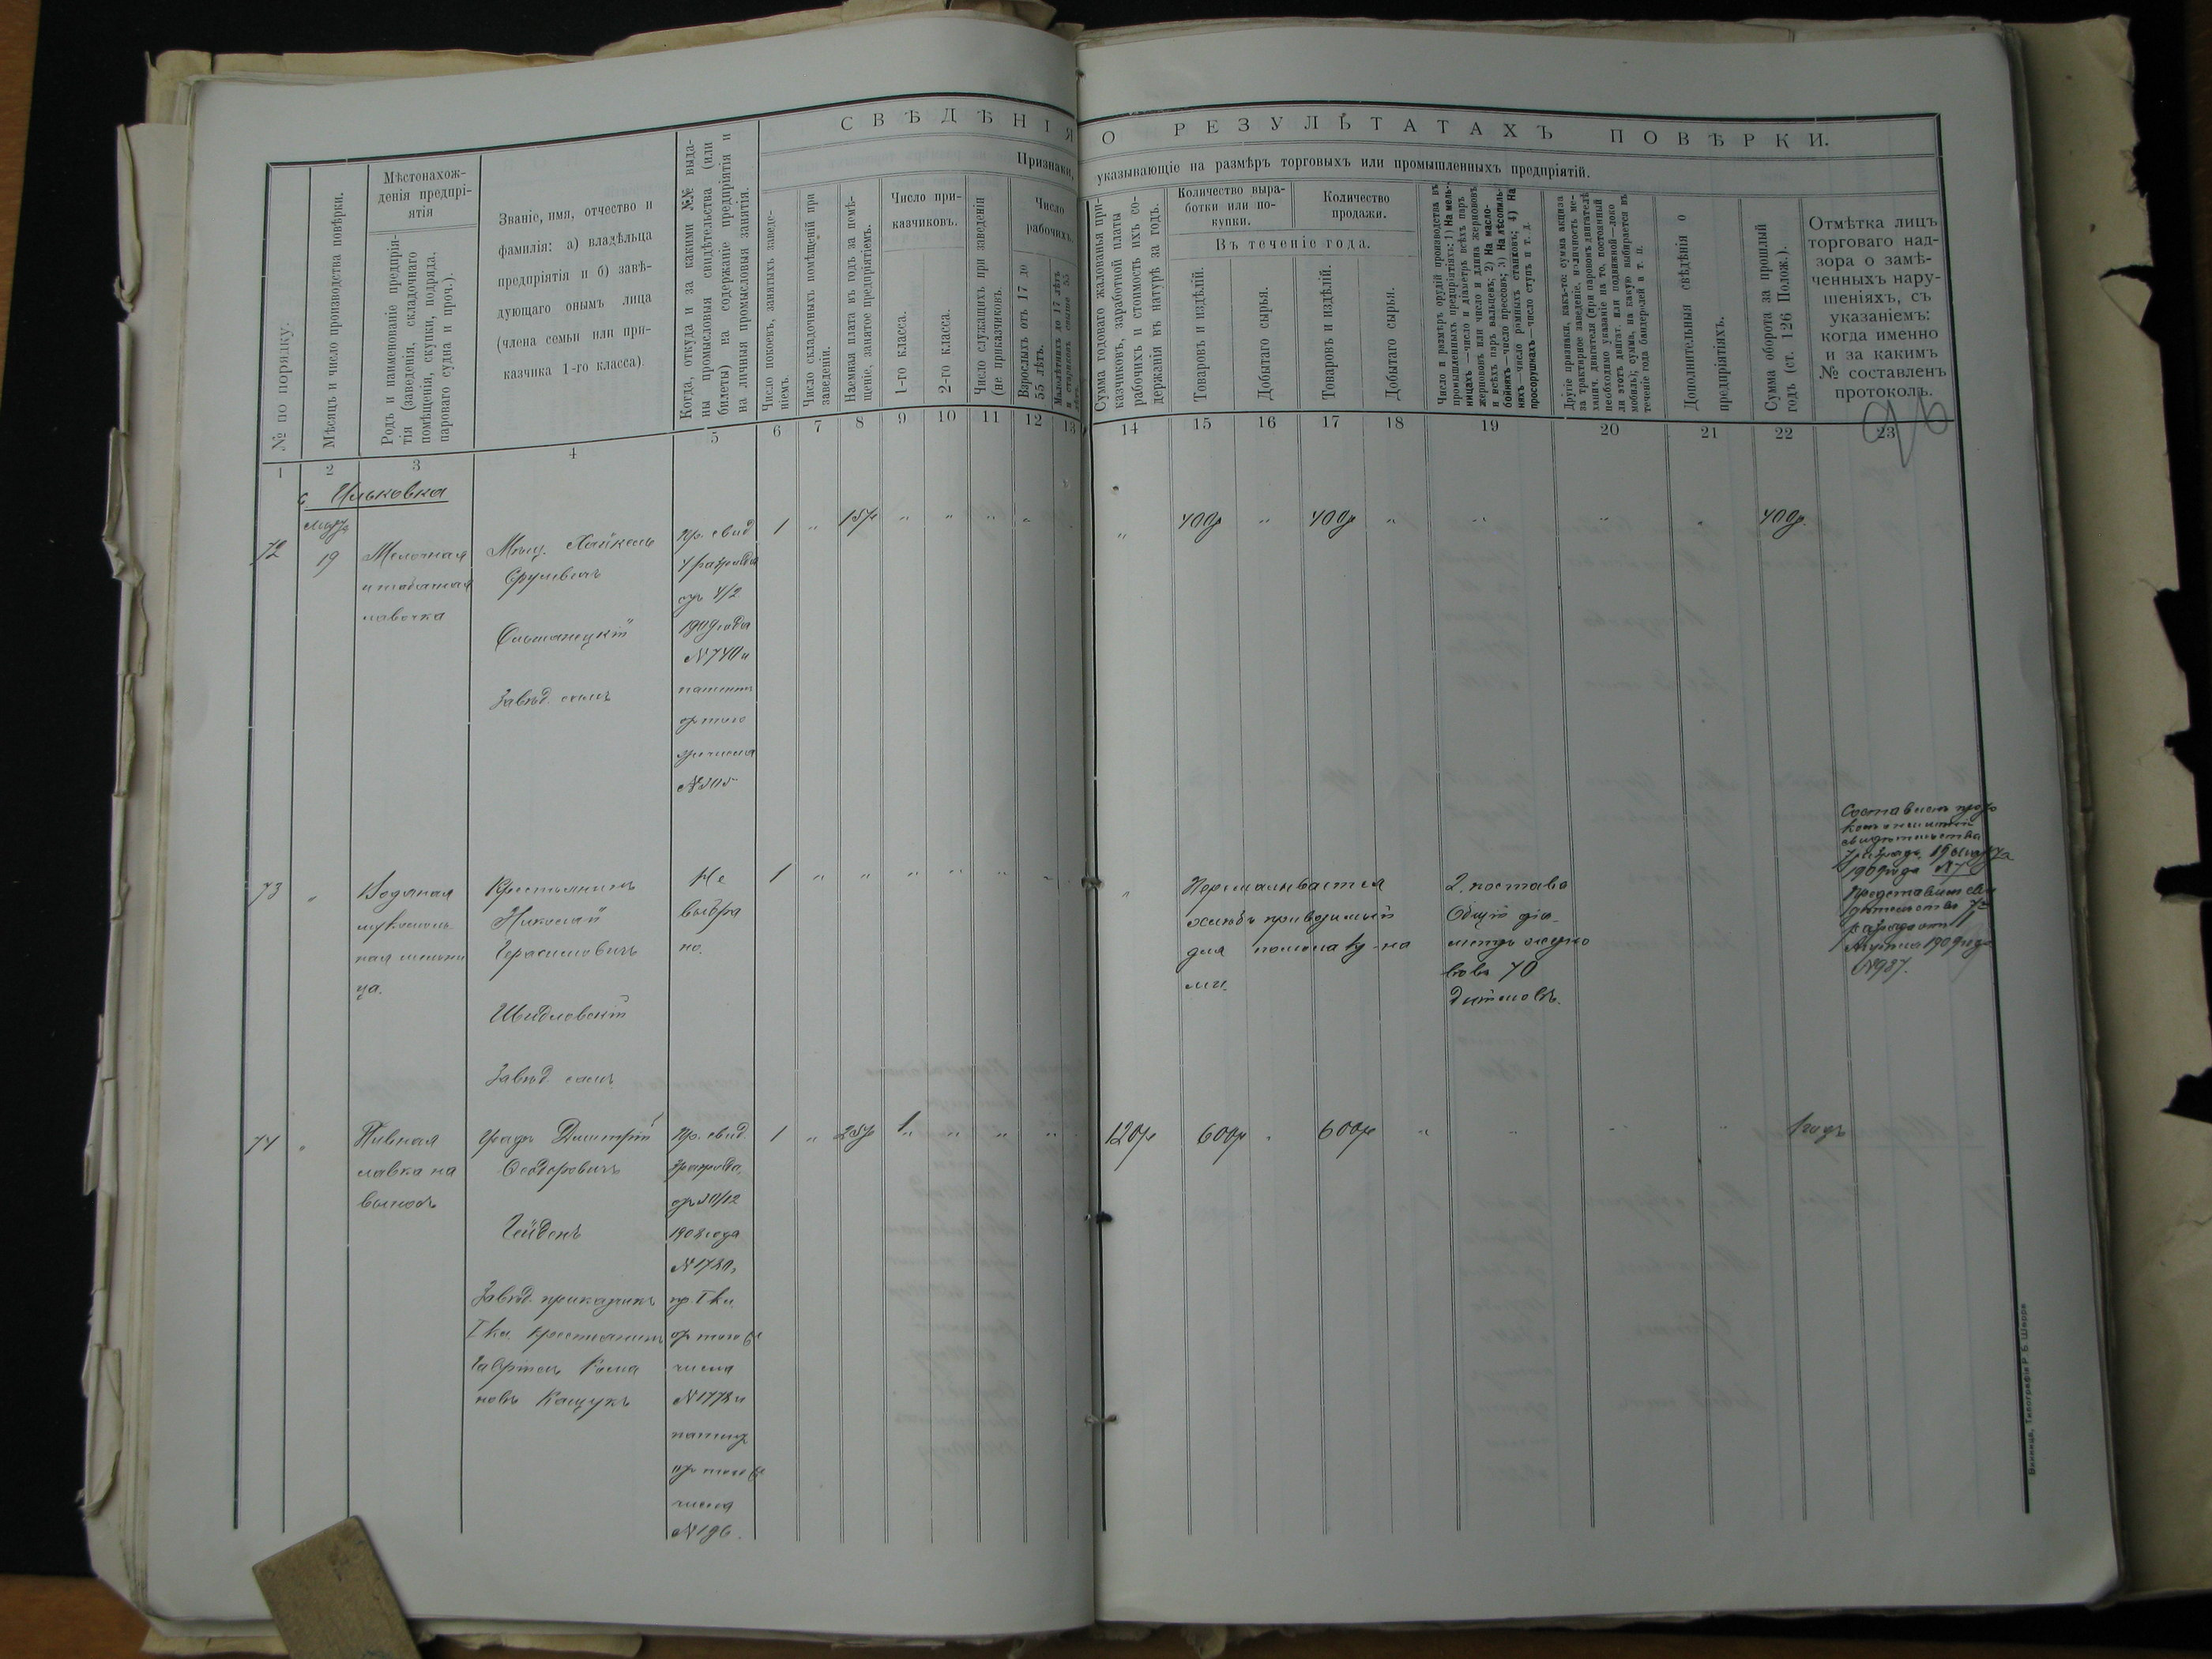 СВѢДѢНІЯ О РЕЗУЛЬТАТАХЪ ПОВѢРКИ.
Признаки, указывающіе на размѣръ торговыхъ или промышленныхъ предпріятій.
№ по порядку.
Мѣсяцъ и число производства повѣрки.
Мѣстонахож-
денія предпрі-
ятія
Родъ и наименованіе предпрія-
тія (заведенія, складочнаго
помѣщенія, скупки, подряда,
пароваго судна и проч.).
Званіе, имя, отчество и
фамилія: а) владѣльца
предпріятія и б) завѣ-
дующаго онымъ лица
(члена семьи или при-
казчика 1-го класса)
Когда, откуда и за какими №№ выда-
ны промысловыя свидѣтельства (или
билеты) на содержаніе предпріятія и
на личныя промысловыя занятія.
Число покоевъ, занятыхъ заведе-
ніемъ.
Число складочныхъ помѣщеній при
заведеніи.
Наемная плата въ годъ за помѣ-
щеніе, занятое предпріятіемъ.
Число при-
казчиковъ.
1-го класса.
2-го класса.
Число служащихъ при заведеніи
(не приказчиковъ).
Число
рабочихъ.
Взрослыхъ отъ 17 до
55 лѣтъ.
Малолѣтнихъ до 17 лѣтъ
и стариковъ свыше 55
лѣтъ.
Сумма годоваго жалованья при-
казчиковъ, заработной платы
рабочихъ и стоимость ихъ со-
держанія въ натурѣ за годъ.
Количество выра-
ботки или по-
купки.
Количество
продажи.
Въ теченіе года.
Товаровъ и издѣлій.
Добытаго сырья.
Товаровъ и издѣлій.
Добытаго сырья.
Число и размѣръ орудій производства въ
промышленныхъ предпріятіяхъ: 1) На мель-
ницахъ—число и діаметръ всѣхъ паръ
жернововъ или число и длина жернововъ
и всѣхъ паръ вальцевъ; 2) На масло-
бойняхъ—число прессовъ; 3) На лѣсопиль-
няхъ—число рамныхъ станковъ; 4) На
просорушкахъ—число ступъ и т. д.
Другіе признаки, какъ-то: сумма акциза
за трактирное заведеніе, наличность ме-
ханич. двигателя (при паровомъ двигателѣ
необходимо указаніе на то, постоянный
ли этотъ двигат. или подвижной—локо
мобиль); сумма, на какую выбирается въ
теченіе года бандеролей и т. п.
Дополнительныя свѣдѣнія о
предпріятіяхъ.
Сумма оборота за прошлый
годъ (ст. 126 Полож.).
Отмѣтка лицъ
торговаго над-
зора о замѣ-
ченныхъ нару-
шеніяхъ, съ
указаніемъ:
когда именно
и за какимъ
№ составленъ
протоколъ.
1 2 3 4 5 6 7 8 9 10 11 12 13 14 15 16 17 18 19 20 21 22 23
с. Ильковка
72
Марта
19
Мелочная
и табачная
лавочка
Мѣщ. Хайкель
Срулевичъ
Ольшанецкій
Завѣд. самъ
Пр. свид
4 разряда
отъ 4/2
1909 года
№ 740 и
патентъ
отъ того
же числа
№ 305
1 " 15р " " " "
" 400р " 400р " " " " 400р.
73
"
Водяная
мукомоль-
ная мельни
ца.
Крестьянинъ
Николай
Герасимовичъ
Шидловскій
Завѣд. самъ
Не
выбра
но.
1 " " " " " "
"
Перемалывается
хлѣбъ привозимый
для помола кр-на
ми.
2. постава
Общій діа-
метръ жерно
вовъ 70
дюймовъ.
1909 года № 7
Августа 1909 года
№ 937.
74
"
Пивная
лавка на
выносъ
Графъ Дмитрій
Феодоровичъ
Гейденъ
Завѣд. приказчикъ
I кл. крестьянинъ
Рома
новъ Кащукъ
Пр. свид.
3 разряда
отъ 30/12
1908 года
№ 1780,
пр. I кл.
отъ того же
числа
№ 1778 и
патентъ
отъ того же
числа
№ 196.
1 " 25р 1 " " " "
120р 600р " 600р " " " " 1 годъ
Винница, Типографія Р. Б. Шерра